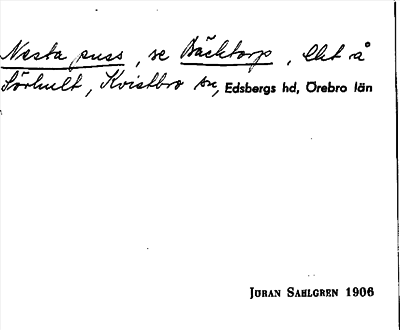 Nästa puss, se Bäcktorp, lht å
Sörhult, Kvistbro sn, Edsbergs hd, Örebro län
JÖRAN SAHLGREN 1906